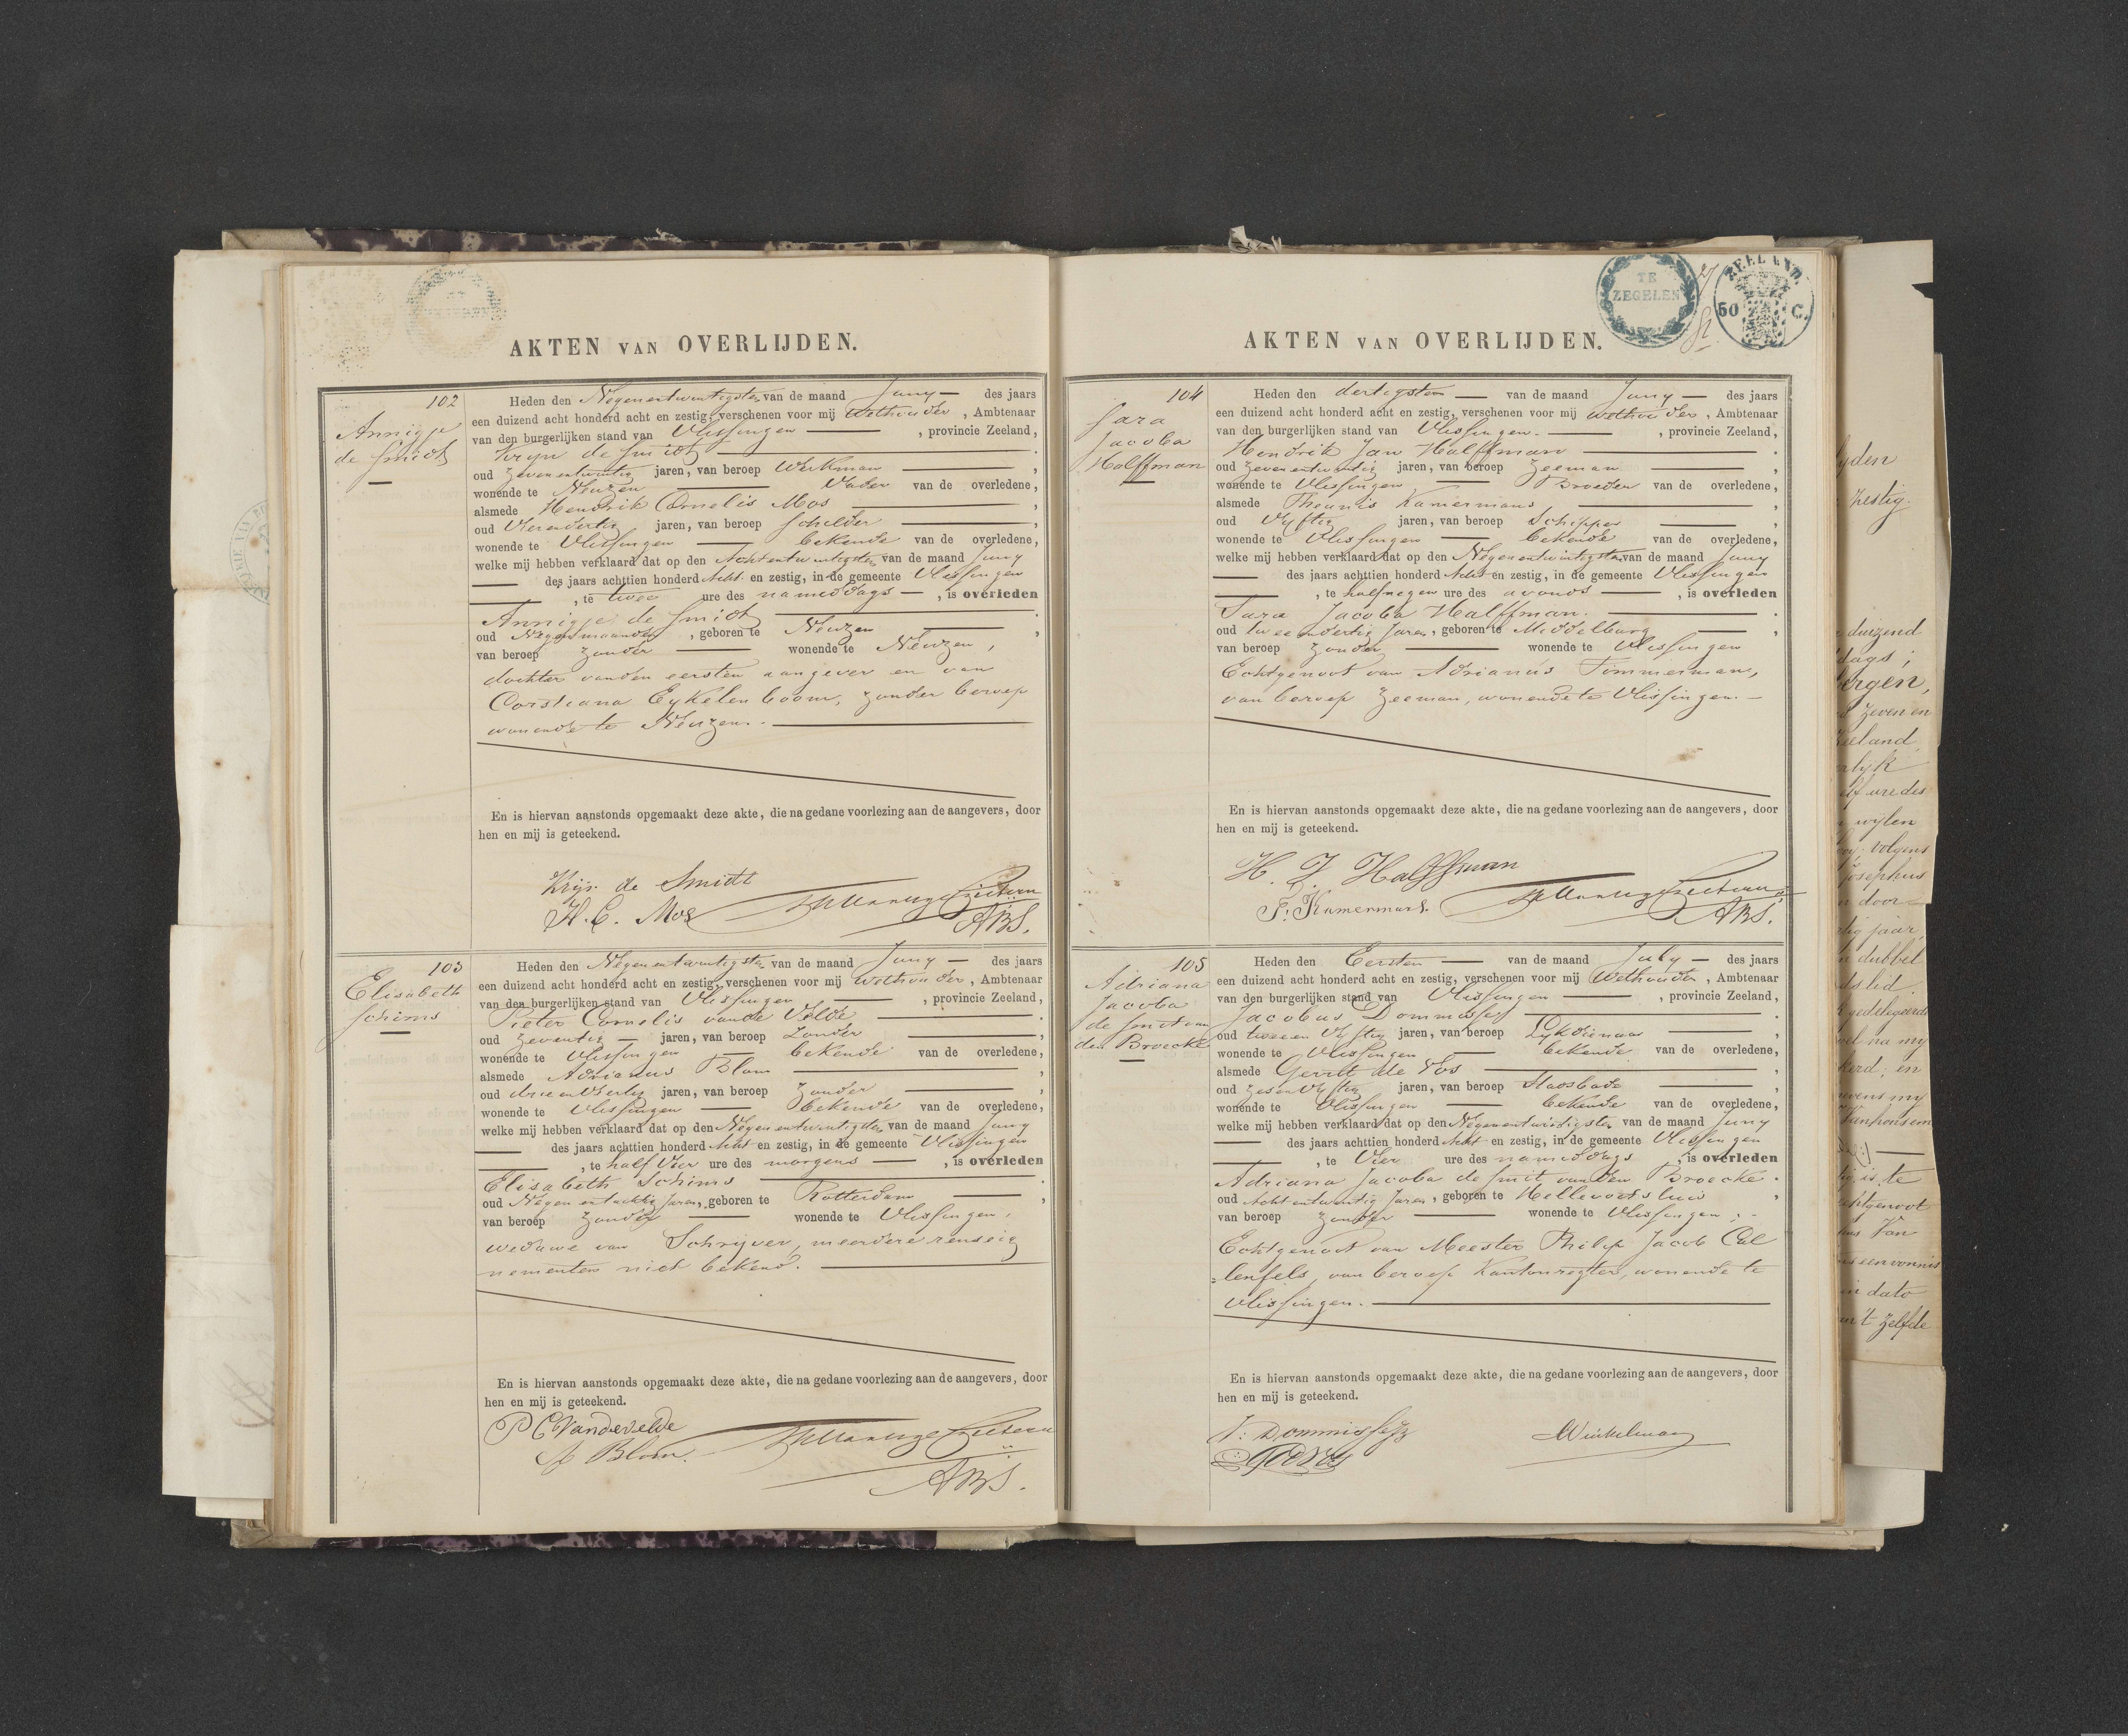 AKTEN VAN OVERLIJDEN.
102
Annigje
de Smidt
Heden den Negenentwintigsten van de maand Juny des jaars
een duizend acht honderd acht en zestig, verschenen voor mij Wethouder, Ambtenaar
van den burgerlijken stand van Vlissingen, provincie Zeeland,
Kryn de Smidt.
oud Zevenentwintig jaren, van beroep Werkman
wonende te Neuzen Vader van de overledene,
alsmede Hendrik Cornelis Mos,
oud Vierendertig jaren, van beroep Schilder,
wonende te Vlissingen bekende van de overledene,
welke mij hebben verklaard dat op den Achtentwintigsten van de maand Juny
des jaars achttien honderd Acht en zestig, in de gemeente Vlissingen
, te twee ure des namiddags, is overleden
Annigje de Smidt.
oud Negen maanden, geboren te Neuzen,
van beroep zonder wonende te Neuzen,
dochter van den eersten aangever en van
Corstiana Eykelenboom, zonder beroep
wonende te Neuzen.
En is hiervan aanstonds opgemaakt deze akte, die na gedane voorlezing aan de aangevers, door
hen en mij is geteekend.
Krijn de Smidt
H. C. Mos
ABS.
103
Elisabeth
Schims
Heden den Negenentwintigsten van de maand Juny des jaars
een duizend acht honderd acht en zestig, verschenen voor mij Wethouder, Ambtenaar
van den burgerlijken stand van Vlissingen, provincie Zeeland,
Pieter Cornelis van de Velde.
oud Zeventig jaren, van beroep Zonder,
wonende te Vlissingen bekende van de overledene,
alsmede Adrianus Blom,
oud drie en Veertig jaren, van beroep Zonder,
wonende te Vlissingen bekende van de overledene,
welke mij hebben verklaard dat op den Negenentwintigsten van de maand Juny
des jaars achttien honderd Acht en zestig, in de gemeente Vlissingen
, te half Vier ure des morgens, is overleden
Elisabeth Schims.
oud Negen entachtig Jaren, geboren te Rotterdam,
van beroep zonder wonende te Vlissingen,
weduwe van Schrijver, meerdere renseig
nementen niet bekend.
En is hiervan aanstonds opgemaakt deze akte, die na gedane voorlezing aan de aangevers, door
hen en mij is geteekend.
P C Vandevelde
A Blom.
ABS.
TE
ZEGELEN
ZEELAND.
50 C.
AKTEN VAN OVERLIJDEN.
104
Sara
Jacoba
Halffman
Heden den dertigsten van de maand Juny des jaars
een duizend acht honderd acht en zestig, verschenen voor mij Wethouder, Ambtenaar
van den burgerlijken stand van Vlissingen., provincie Zeeland,
Hendrik Jan Halffman.
oud Zevenentwintig jaren, van beroep Zeeman,
wonende te Vlissingen Broeder van de overledene,
alsmede Theunis Kamermans,
oud Vyftig jaren, van beroep Schipper,
wonende te Vlissingen bekende van de overledene,
welke mij hebben verklaard dat op den Negenentwintigsten van de maand Juny
des jaars achttien honderd Acht en zestig, in de gemeente Vlissingen
, te halfnegen ure des avonds, is overleden
Sara Jacoba Halffman.
oud tweeendertig Jaren, geboren te Middelburg,
van beroep Zonder wonende te Vlissingen
Echtgenoot van Adrianus Timmerman,
van beroep Zeeman, wonende te Vlissingen.
En is hiervan aanstonds opgemaakt deze akte, die na gedane voorlezing aan de aangevers, door
hen en mij is geteekend.
H. J. Halffman
T. Kamermans.
ABS.
105
Adriana
Jacoba
de Smit van
den Broecke
Heden den Eersten van de maand July des jaars
een duizend acht honderd acht en zestig, verschenen voor mij Wethouder, Ambtenaar
van den burgerlijken stand van Vlissingen, provincie Zeeland,
Jacobus Dommisse.
oud tweeen Vyftig jaren, van beroep Lykdienaar,
wonende te Vlissingen bekende van de overledene,
alsmede Gerrit de Vos,
oud zesenVyftig jaren, van beroep,
wonende te Vlissingen bekende van de overledene,
welke mij hebben verklaard dat op den Negenentwintigsten van de maand Juny
des jaars achttien honderd Acht en zestig, in de gemeente Vlissingen
, te Vier ure des namiddags, is overleden
Adriana Jacoba de Smit van den Broecke.
oud Acht entwintig Jaren, geboren te Hellevoetsluis,
van beroep Zonder wonende te Vlissingen,
Echtgenoot van Meester Philip Jacob Cal
lenfels, van beroep Kantonregter, wonende te
Vlissingen.
En is hiervan aanstonds opgemaakt deze akte, die na gedane voorlezing aan de aangevers, door
hen en mij is geteekend.
J: Dommisse
G de Vos
Winkelman
zestig.
duizend
dags;
zeven en
ure des
wylen
volgens
Josephus
door
jaar,
dubbel
na my
en
te
Van
dato
't zelfde